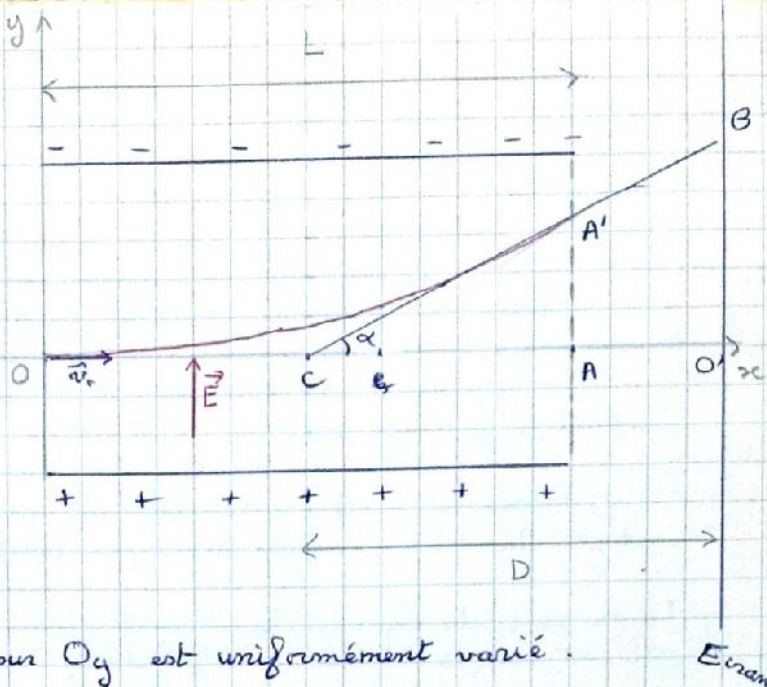 y
L
- - - - - - -
B
A'
α
O v⃗₀ E⃗ C A O' x
+ + + + + + +
D
sur Oy est uniformément varié.
Ecran